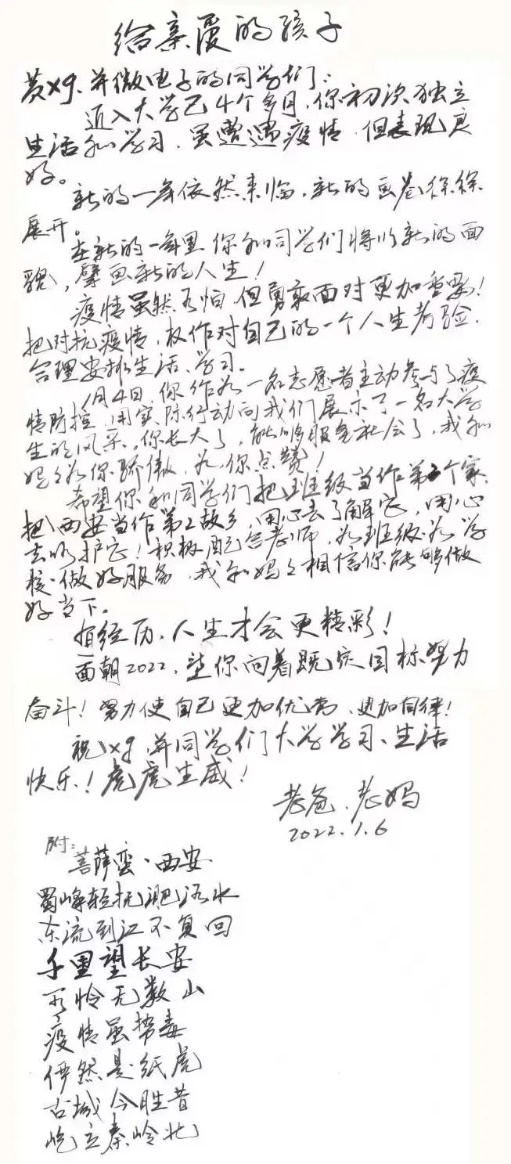 给亲爱的孩子
黄xg、并微电子的同学们：
近入大学已4个多月，你初次独立
生活和学习，虽遭遇疫情，但表现良
好。
新的一年依然来临，新的画卷徐徐
展开。
在新的一年里你和同学们将以新的面
貌，擘画新的人生！
疫情虽然可怕，但勇敢面对更加重要！
把对抗疫情，权作对自己的一个人生考验，
合理安排生活、学习。
1月4日，你作为一名志愿者主动参与了疫
情防控，用实际行动向我们展示了一名大学
生的风采，你长大了，能够服务社会了，我和
妈妈为你骄傲，为你点赞！
希望你和同学们把班级当作第2个家，
把西安当作第2故乡，用心去了解它，用心
去呵护它！积极配合老师，为班级为学
校做好服务，我和妈妈相信你能够做
好当下。
有经历，人生才会更精彩！
面朝2022，望你向着既定目标努力
奋斗！努力使自己更加优秀、更加自律！
祝xg并同学们大学学习、生活
快乐！虎虎生威！
老爸、老妈
2022.1.6
附：
菩萨蛮·西安
蜀峰轻抚水
东流到江不复回
千里望长安
可怜无数山
疫情虽势毒
伊然是纸虎
古城今胜昔
屹立秦岭北